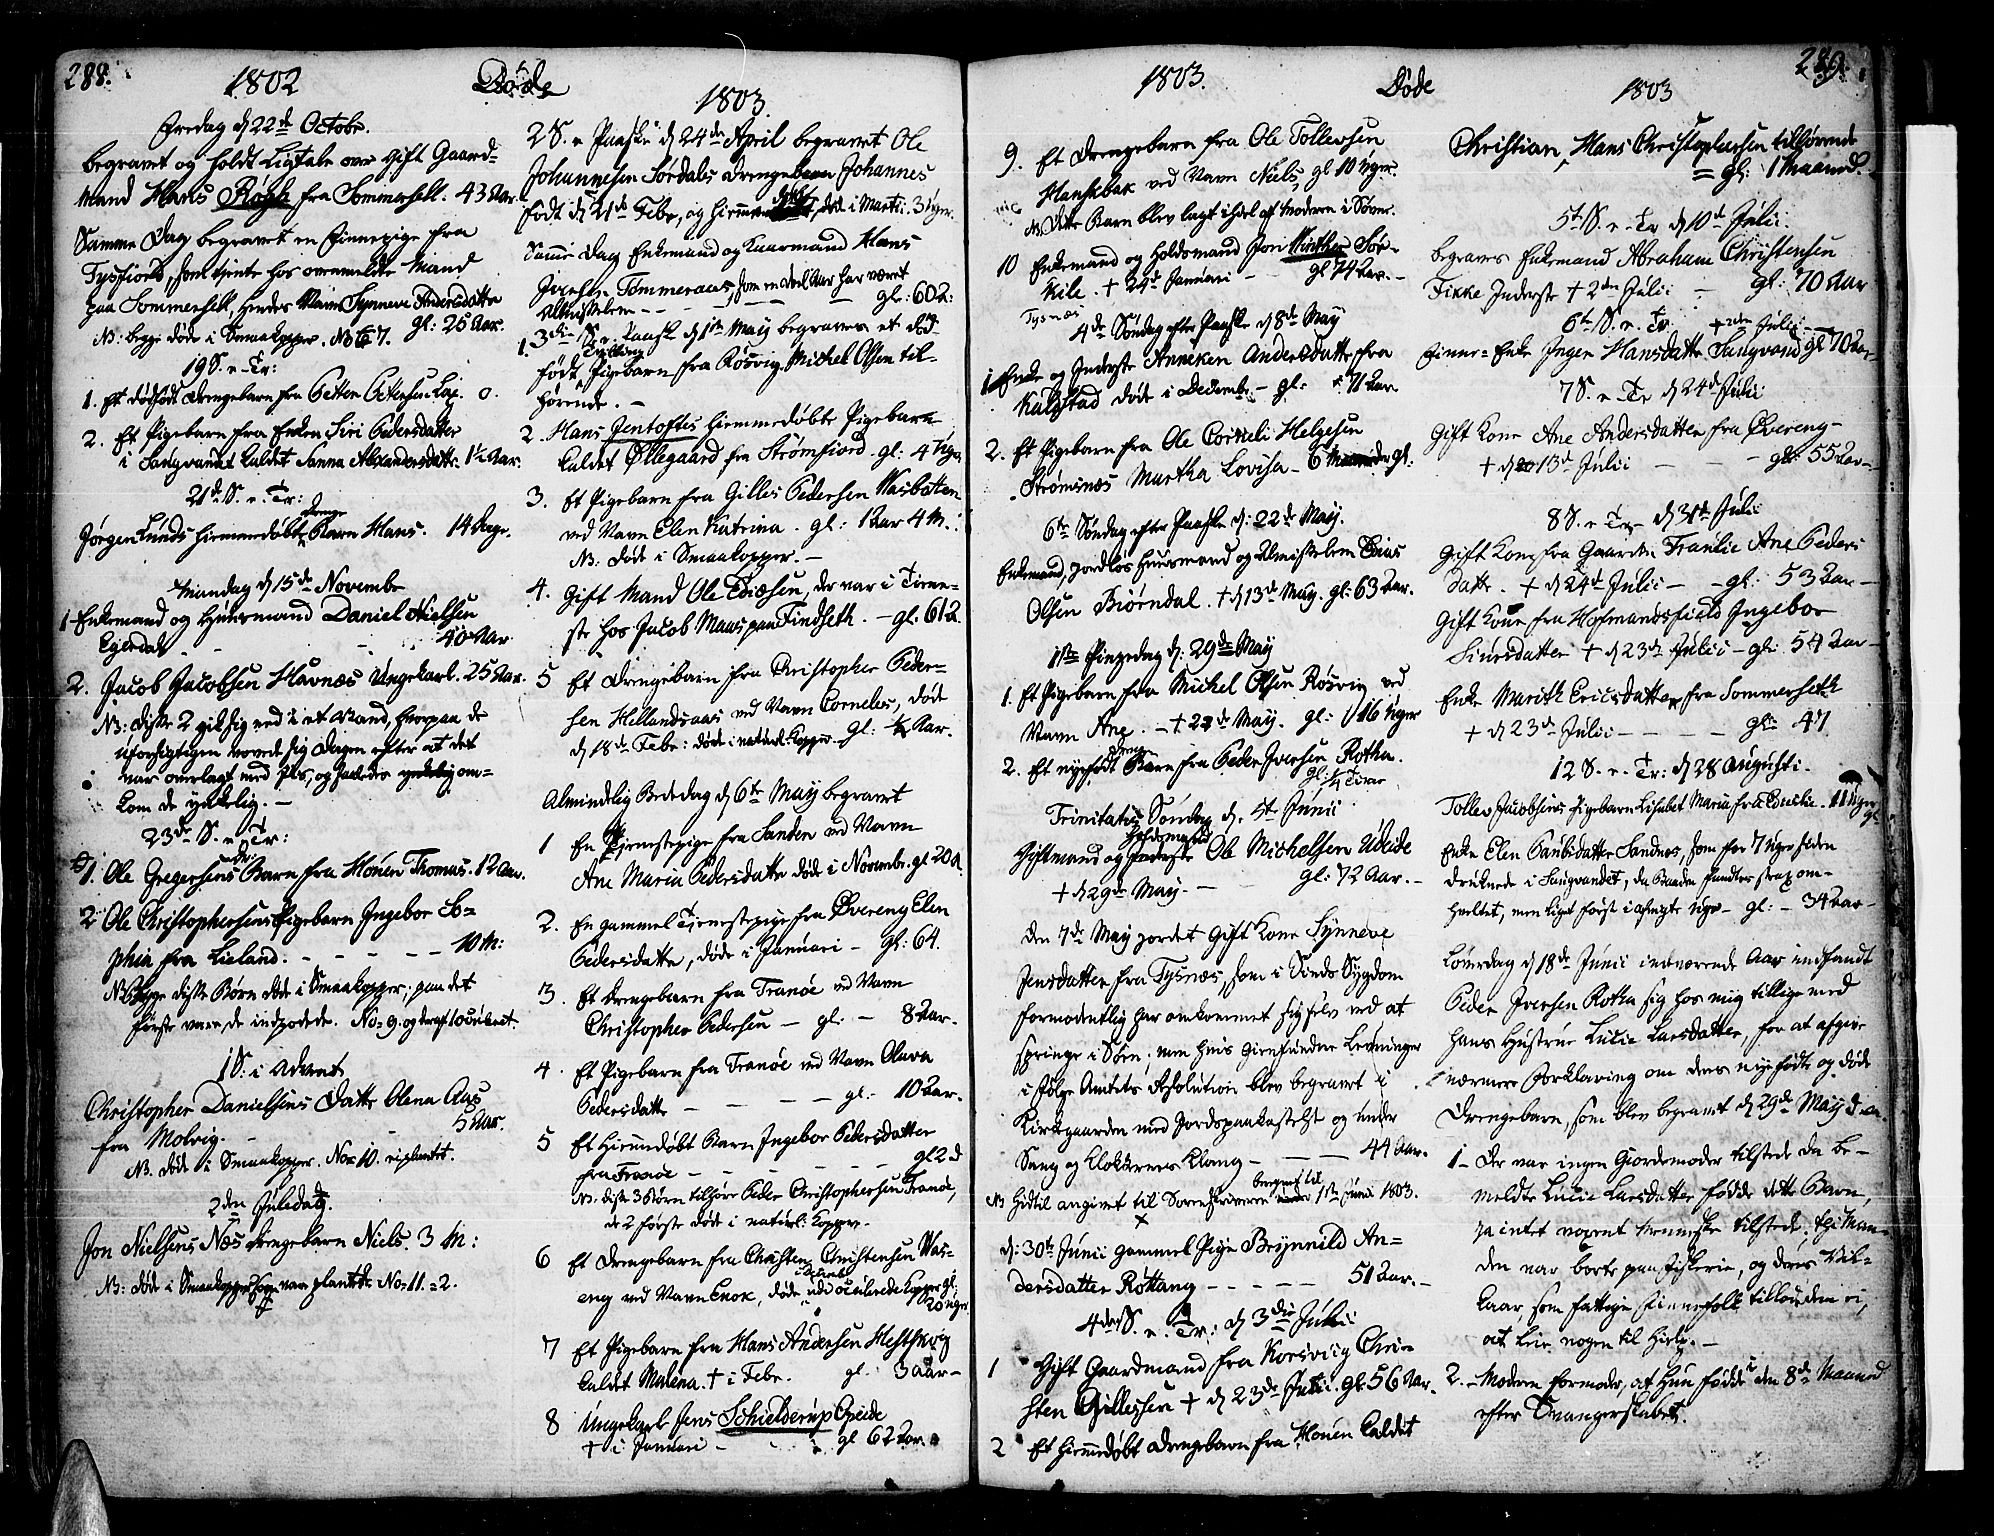 288.
1802
Døde
Fredag d 22de Octobr.
begravet og holdt Ligtale over Gift Gaard-
mand Hans Røgh fra Sommerseth. 43 Aar.
Samme Dag begravet en Finnepige fra
Tysfiord, som tjente hos ovenmeldte Mand
paa Sommerseth, hendes Navn Synneve Andersdatter
gl: 25 Aar.
NB: begge døde i Smaakopper. No 6 & 7.
19 S. e. Tr:
1. Et dødfødt Drengebarn fra Petter Petersen Lap. 0.
2. Et Pigebarn fra Enken Siri Pedersdatter
i Langvandet kaldet Sanna Alexandersdatter. 1½ Aar.
21de S. e. Tr:
Jørgen Lunds hiemmedøbte Drenge Barn Hans. 14 Dage.
Mandag d 15de Novembr
1 Enkemand og Huusmand Daniel Nielsen
Egerdal - - 40 Aar
2. Jacob Jacobsen Havnæs Ungekarl. 25 Aar.
NB: disse 2 gik sig ned i et Vand, hvorpaa de
uforsigtigen vovede sig Dagen efter at det
var overlagt med Iis, og saaledes ynkelig om-
kom de ynkelig. -
23de S. e. Tr:
1. Ole Gregersens Barn fra Mouen Thomas. 12 Aar.
2 Ole Christophersens Pigebarn Ingebor So-
phia fra Lieland. - - - - - 10 M:
NB. Begge disse Børn døde i Smaakopper; paa det
første vare de indpodede. No = 9. og deraf 1 oculeret.
1 S: i Advent
Christopher Danielsens Datter Olena Aas
fra Molvig. - 5 Aar.
NB. døde i Smaakopper. No = 10. ei plantet.
2den Juledag.
Jon Nielsens Næs Drengebarn Niels. 3 M:
NB: døde i Smaakopper som vare plantede No = 11. = 2.
1803.
2 S. e Paaske d 24de April begravet Ole
Johannesen Sørdals Drengebarn Johannes
født d 21de Febr, og hiemmedøbt, døde i Martii. 3 Uger.
Samme Dag Enkemand og Kaarmand Hans
Iversen Tømmeraas som en deel Aar har været
Almisselem - - - gl: 60 A:
1. 3die S. e. Paaske d 1ste May begraves et død-
født Tvilling Pigebarn fra Røsvig Michel Olsen til-
hørende. -
2. Hans Jentoftes hiemmedøbte Pigebarn
kaldet Øllegaard fra Strømfiord - gl: 4 Uger
3. Et Pigebarn fra Gilles Pedersen Vasbotten
ved Navn Elen Katrina. gl: 1 Aar 4 M.
NB. døde i Smaakopper. -
4. Gift Mand Ole Eliæsen, der var i Tiene-
ste hos Jacob Maas paa Findseth. - gl: 61 A.
5 Et Drengebarn fra Christopher Peder-
sen Hellandsaas ved Navn Cornelis, døde
d 18de Febr: døde i naturl: Kopper. gl: ½ Aar.
Almindelig Bededag d 6te May begravet
1 En Tjenestepige fra Sanden ved Navn
Ane Maria Pedersdatter døde i Novembr. gl 20 A.
2. En gammel Tjenestepige fra Øvereng Elen
Pedersdatter, døde i Januari - gl: 64.
3. Et Drengebarn fra Tranøe ved Navn
Christopher Pedersen - gl: - 8 Aar.
4. Et Pigebarn fra Tranøe ved Navn Olava
Pedersdatter - - - - gl: 10 Aar.
5 Et hiemmedøbt Barn Ingebor Pedersdatter
fra Tranøe - - - - - gl 2 d
NB. disse 3 Børn tilhøre Peder Christophersen Tranøe,
de 2 første døde i naturl: Kopper.
6 Et Drengebarn fra Christen Christensen Vas-
eng ved Navn Enok, døde udi oculerede Kopper gl:
20 Uger
7 Et Pigebarn fra Hans Andersen Hestskrig
kaldet Malena. + i Febr. gl. 3 Aar -
8 Ungekarl Jens Schielderup Opeide
+ i Januari - gl 62 Aar.
289.
1803.
Døde
1803
9. Et Drengebarn fra Ole Tollevsen
Hanskebak ved Navn Niels, gl 10 Uger.
NB. Dette Barn blev lagt ihiel af Moderen i Søvne.
10 Enkemand og Holdsmand Jon Winther Sør-
kile. + 24de Januari - gl 74 Aar. -
Tysnæs
4de Søndag efter Paaske d 8de May
1 Enke og Inderste Anneken Andersdatter fra
Kalpstad døde i Decembr. - gl: 71 Aar.
2. Et Pigebarn fra Ole Corneli Helgesen
Strømsnæs Martha Lovisa - 6 Maaneder gl:
6te Søndag efter Paaske d: 22de May.
Enkemand, jordløs Huusmand og Almisselem Elias
Olsen Biørndal. + d 13de May. gl: 63 Aar.
1ste Pingsedag d: 29de May
1. Et Pigebarn fra Michel Olsen Røsvig ved
Navn Ane. - + 22de May. gl: 16 Uger
2. Et nyefødt Drenge Barn fra Peder Iversen Rotha.
gl: ¼ Time
Trinitatis Søndag d. 5te Junii
Giftmand og Holdsmand Ole Michelsen Udeide
+ d 29de May. - gl: 72 Aar. -
Den 7de May jordet Gift Kone Synneve
Jensdatter fra Tysnæs, som i Sinds Sygdom
formodentlig har omkommet sig selv ved at
springe i Søen; men hvis gienfundne Levninger
i Følge Amtets Resolution blev begravet i
Kirkegaarden med Jordspaakastelse og under
Sang og Klokkernes Klang - - - 44 Aar.
NB Hidtil angivet til Sorenskriveren beregnet til 1ste Junii 1803.
d: 30te Junii gammel Pige Brynnild An-
dersdatter Røttang - - - - - 51 Aar. -
4de S. e. Tr: d 3die Julii
1 Gift Gaardmand fra Korsvig Chri-
sten Gillessen + d 23de Junii. gl: 56 Aar.
2 Et hiemmedøbt Drengebarn fra Mouen kaldet
Christian, Hans Christophersen tilhørende
= gl: 1 Maaned.
5te S. e. Tr d 10de Julii.
begraves Enkemand Abraham Christensen
Fikke Inderste + 2den Julii - gl: 70 Aar
6te S. e. Tr. + 2den Julii.
Finne-Enke Inger Hansdatter Langvand gl 70 Aar
7 S. e Tr d 24de Julii
Gift Kone Ane Andersdatter fra Øvereng -
+ d 13de Julii - - gl: 55 Aar -
8 S. e Tr d 31te Julii
Gift Kone fra Gaarden Frantie Ane Peders
datter. + d 24de Julii - - gl: 53 Aar -
Gift Kone fra Hofmandsfield Ingebor
Siursdatter + d 23de Julii - gl: 54 Aar -
Enke Marith Ericsdatter fra Sommerseth
+ d 23de Julii - - - - gl: 47
12 S. e. Tr: d 28 Augusti.
Tollev Jacobsens Pigebarn Lisabet Maria fra 11 Uger gl
Enke Elen Paulsdatter Sandnes, som for 7 Uger siden
druknede i Langvandet, da Baaden fandtes strax om-
hvelvet, men Liget først i afvigte Uge - gl: - 34 Aar -
Løverdag d 18de Junii indeværende Aar indfandt
Peder Iversen Rotha sig hos mig tillige med
hans Hustrue Lucie Larsdatter, for at afgive
nærmere Forklaring om deres nyefødte og døde
Drengebarn, som blev begravet d 29de May d. a.
1 - Der var ingen Giordemoder tilstede da be-
meldte Lucie Larsdatter fødde dette Barn,
ja intet voxent Menneske tilstede; thi Man-
den var borte paa Fiskerie, og deres Vil-
kaar, som fattige Finnefolk tillode dem ei,
at leie nogen til Hielp. -
2. - Moderen formoder, at hun fødde i den 8de Maaned
efter Svangerskabet.